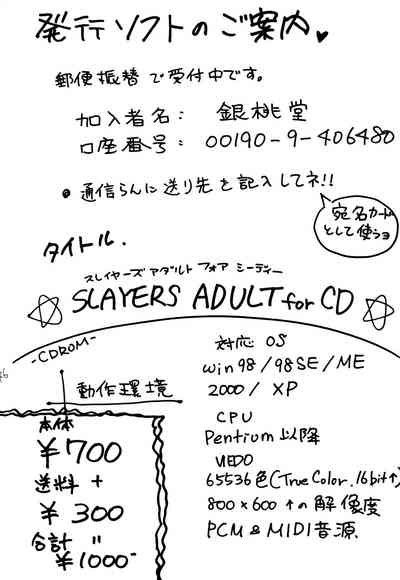 発行ソフトのご案内♥
郵便振替で受付中です。
加入者名: 銀桃堂
口座番号: 00190-9-406480
● 通信らんに送り先を記入してネ!!
宛名カード
として使うヨ
タイトル.
スレイヤーズ アダルト フォア シーディー
☆ SLAYERS ADULT for CD ☆
-CDROM-
動作環境
本体
¥700
送料 +
¥300
合計 〃
¥1000-
対応 OS
win98/98SE/ME
2000/ XP
CPU
Pentium以降
VIEDO
65536色(TrueColor.16bit↑)
800×600 ↑の解像度
PCM & MIDI音源